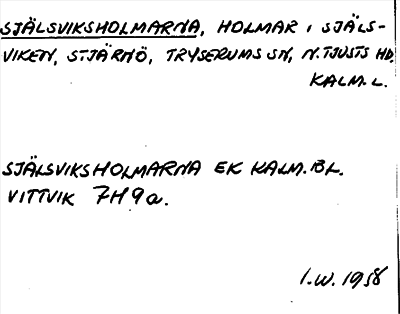 SJÄLSVIKSHOLMARNA, HOLMAR I SJÄLS-
VIKEN, STJÄRNÖ, TRYSERUMS SN, N. TJUSTS HD,
KALM. L.
SJÄLSVIKSHOLMARNA EK KALM. BL.
VITTVIK 7H9a.
I.W. 1958